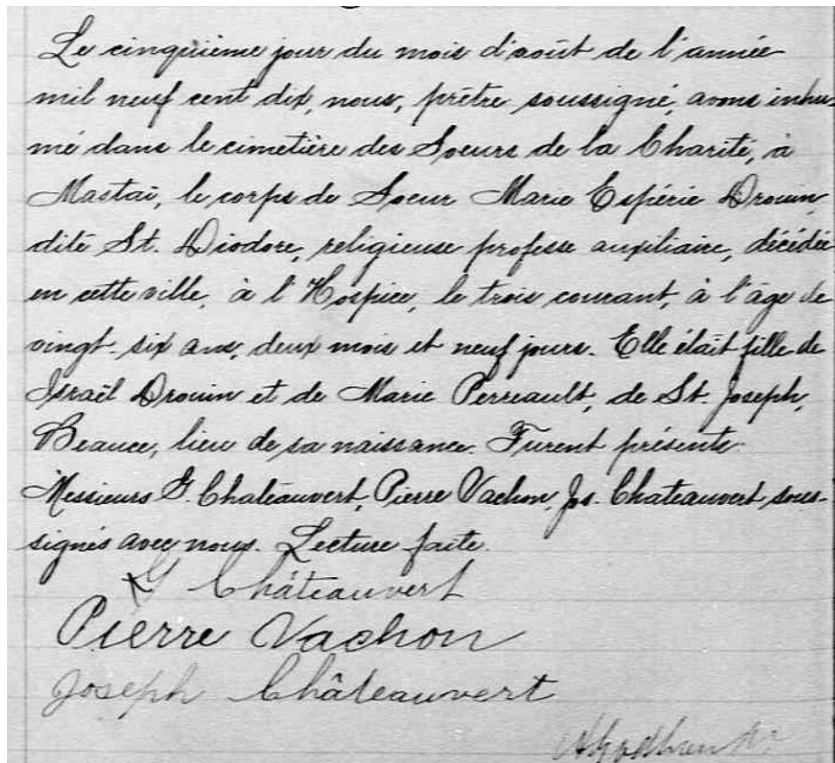 Le cinquième jour du mois d'août de l'année
mil neuf cent dix, nous, prêtre soussigné, avons inhu-
mé dans le cimetière des Soeurs de la Charité, à
Mastaï, le corps de Soeur Marie Espérie Drouin,
dite St. Diodore, religieuse professe auxiliaire, décédée
en cette ville, à l'Hospice, le trois courant, à l'âge de
vingt-six ans, deux mois et neuf jours. Elle était fille de
Israël Drouin et de Marie Perreault, de St. Joseph,
Beauce, lieu de sa naissance. Furent présents
Messieurs G. Chateauvert, Pierre Vachon, Jos. Chateauvert sous-
signés avec nous. Lecture faite.
G Châteauvert
Pierre Vachon
Joseph Châteauvert